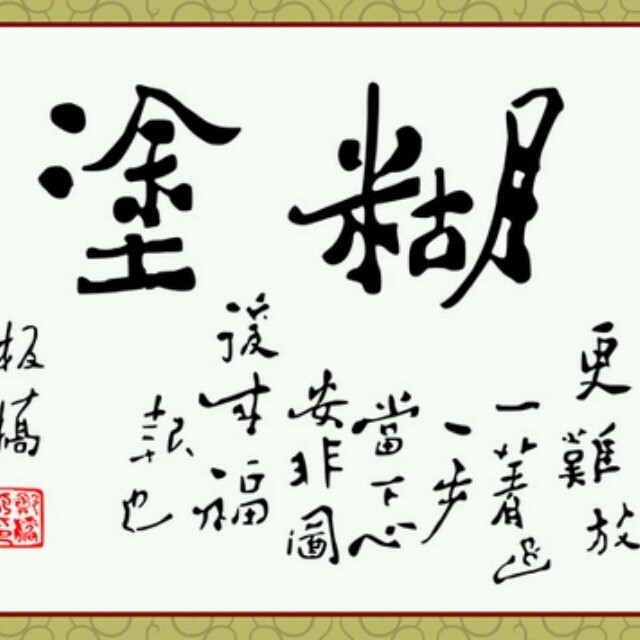 糊塗
更難放
一著退
一步
當下心
安非圖
後來福
報也
板橋